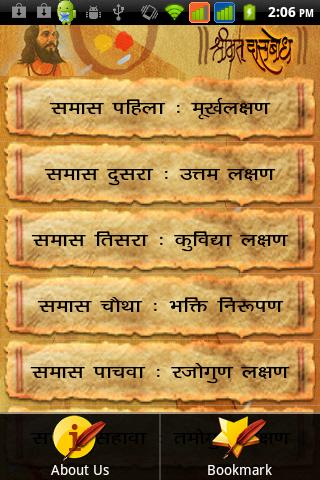 2:06 PM
॥श्रीमत् दासबोध॥
समास पहिला : मूर्खलक्षण
समास दुसरा : उत्तम लक्षण
समास तिसरा : कुविद्या लक्षण
समास चौथा : भक्ति निरूपण
समास पाचवा : रजोगुण लक्षण
समास सहावा : तमोगुण लक्षण
About Us
Bookmark